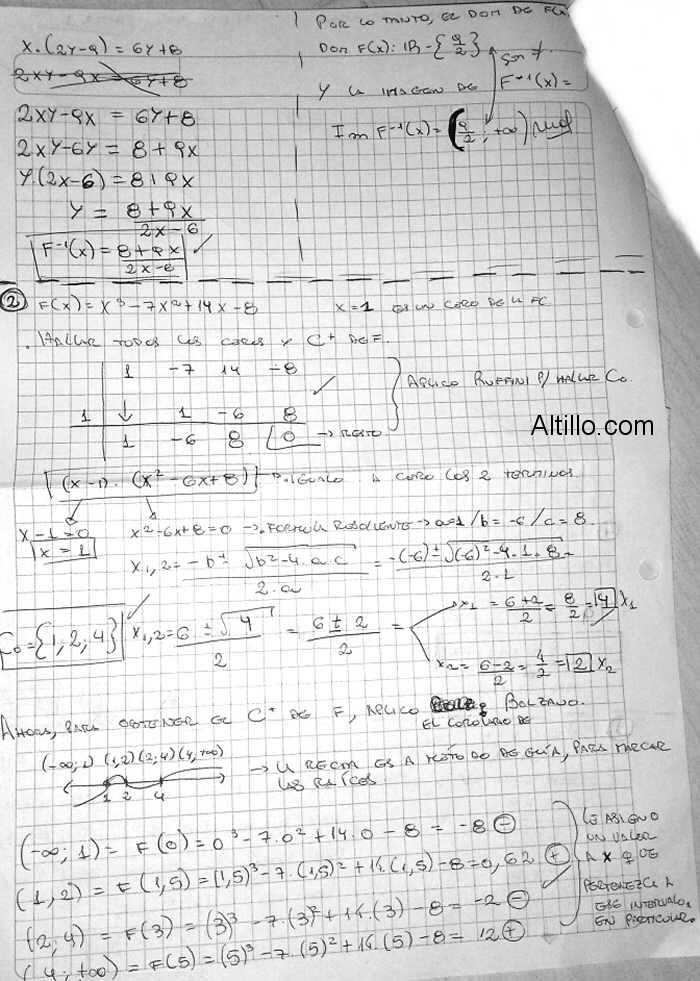 X.(2Y-9) = 6Y+8
2XY-9X = 6Y+8
2XY-9X = 6Y+8
2XY-6Y = 8+9X
Y.(2X-6) = 8+9X
Y = 8+9X / 2X-6
F⁻¹(X) = 8+9X / 2X-6
POR LO TANTO, EL DOM DE F(X)
DOM F(X): IR - {9/2}
SON ≠
Y LA IMAGEN DE F⁻¹(X) =
Im F⁻¹(X) = (9/2 ; +∞)
② F(X) = X³-7X²+14X-8 X=1 ES UN CORO DE LA FC
. HALLAR TODOS LOS COROS Y C⁺ DE F.
1 -7 14 -8
APLICO RUFFINI P/ HALLAR C₀.
1 ↓ 1 -6 8
1 -6 8 0 → RESTO
Altillo.com
(X-1) . (X²-6X+8) → IGUALO A CORO LOS 2 TERMINOS
X-1=0 X²-6X+8=0 → FORMULA RESOLVENTE → a=1 / b=-6 / c=8
X=1
X₁,₂ = -b ± √b²-4.a.c / 2.a = -(-6) ± √(-6)²-4.1.8 / 2.1
C₀={1,2,4} X₁,₂ = 6 ± √4 / 2 = 6 ± 2 / 2 =
X₁ = 6+2 / 2 = 8/2 = 4 X₁
X₂ = 6-2 / 2 = 4/2 = 2 X₂
AHORA, PARA OBTENER EL C⁺ DE F, APLICO EL COROLARIO DE BOLZANO.
(-∞; 1) (1,2) (2;4) (4,+∞)
1 2 4
→ LA RECTA ES A MODO DE GUÍA, PARA MARCAR
LAS RAÍCES
(-∞; 1) = F(0) = 0³-7.0²+14.0-8 = -8 ⊖
(1,2) = F(1,5) = (1,5)³-7.(1,5)²+14.(1,5)-8 = 0,62 ⊕
(2;4) = F(3) = (3)³-7.(3)²+14.(3)-8 = -2 ⊖
(4;+∞) = F(5) = (5)³-7.(5)²+14.(5)-8 = 12 ⊕
LE ASIGNO
UN VALOR
A X Q DE
PERTENEZCA A
ESE INTERVALO,
EN PARTICULAR.